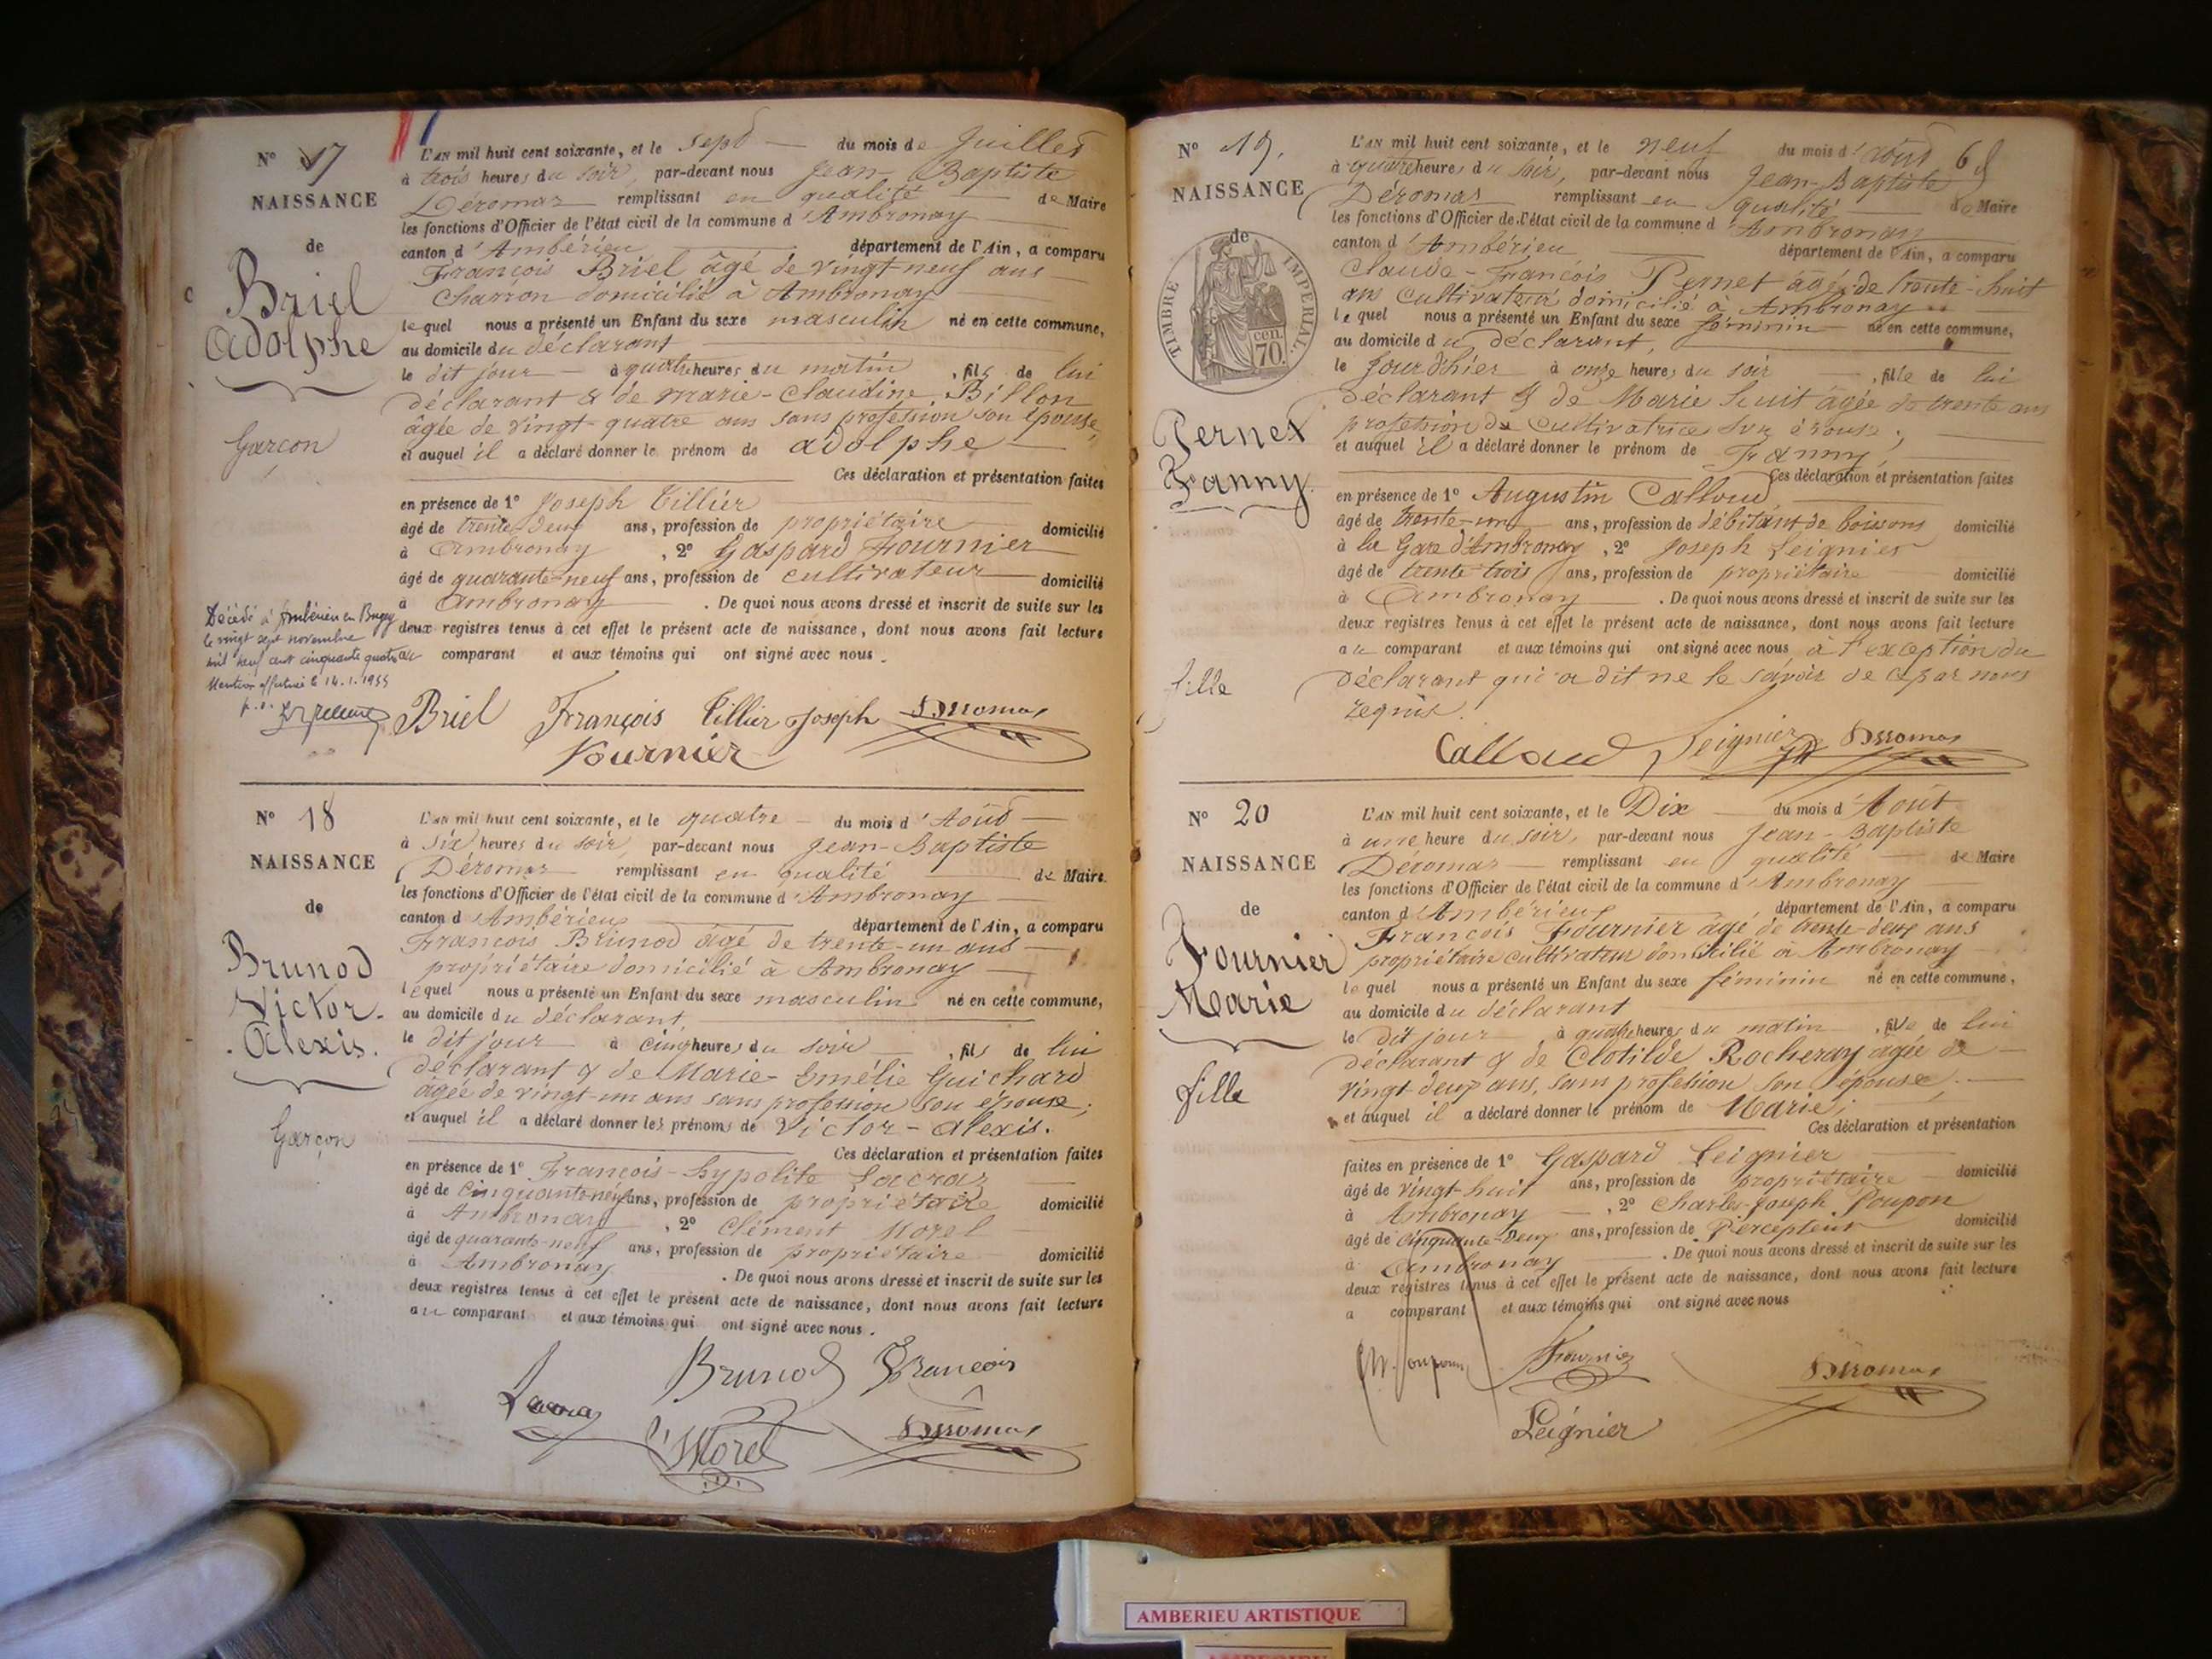 N° 17
NAISSANCE
de
Briel
Adolphe
Garçon
L'AN mil huit cent soixante, et le sept du mois de Juillet
à trois heures du soir, par-devant nous Jean-Baptiste
Déromas remplissant en qualité de Maire
les fonctions d'Officier de l'état civil de la commune d'Ambronay
canton d'Ambérieu département de l'Ain, a comparu
François Briel âgé de vingt neuf ans
Charron domicilié à Ambronay
lequel nous a présenté un Enfant du sexe masculin né en cette commune,
au domicile du déclarant
le dit jour à quatre heures du matin, fils de lui
déclarant & de Marie-Claudine Billon
âgée de vingt-quatre ans sans profession son épouse,
et auquel il a déclaré donner le prénom de adolphe
Ces déclaration et présentation faites
en présence de 1° Joseph Tillier
âgé de trente-deux ans, profession de propriétaire domicilié
à Ambronay, 2° Gaspard Fournier
âgé de quarante-neuf ans, profession de cultivateur domicilié
à Ambronay. De quoi nous avons dressé et inscrit de suite sur les
deux registres tenus à cet effet le présent acte de naissance, dont nous avons fait lecture
au comparant et aux témoins qui ont signé avec nous.
Décédé à Ambérieu en Bugey
le vingt sept novembre
mil neuf cent cinquante quatre
Mention effectuée le 14.1.1955
p.o.
Briel François Tillier Joseph Déromas
Fournier
N° 18
NAISSANCE
de
Brunod
Victor-
Alexis.
Garçon
L'AN mil huit cent soixante, et le quatre du mois d'Août
à six heures du soir, par-devant nous Jean-Baptiste
Déromas remplissant en qualité de Maire
les fonctions d'Officier de l'état civil de la commune d'Ambronay
canton d'Ambérieux département de l'Ain, a comparu
François Brunod âgé de trente-un ans
propriétaire domicilié à Ambronay
lequel nous a présenté un Enfant du sexe masculin né en cette commune,
au domicile du déclarant,
le dit jour à cinq heures du soir, fils de lui
déclarant & de Marie-Emélie Guichard
âgée de vingt-un ans sans profession son épouse;
et auquel il a déclaré donner les prénoms de Victor-Alexis.
Ces déclaration et présentation faites
en présence de 1° François-hypolite Lacraz
âgé de cinquante-neuf ans, profession de propriétaire domicilié
à Ambronay, 2° Clément Morel
âgé de quarante-neuf ans, profession de propriétaire domicilié
à Ambronay. De quoi nous avons dressé et inscrit de suite sur les
deux registres tenus à cet effet le présent acte de naissance, dont nous avons fait lecture
au comparant et aux témoins qui ont signé avec nous.
Brunod François
Lacraz
Morel Déromas
N° 19.
NAISSANCE
de
TIMBRE IMPÉRIAL.
70 cen.
Pernet
Fanny
fille
L'AN mil huit cent soixante, et le neuf du mois d'Août
à quatre heures du soir, par-devant nous Jean-Baptiste
Déromas remplissant en qualité de Maire
les fonctions d'Officier de l'état civil de la commune d'Ambronay
canton d'Ambérieu département de l'Ain, a comparu
Claude-François Pernet âgé de trente-huit
ans Cultivateur domicilié à Ambronay
lequel nous a présenté un Enfant du sexe féminin né en cette commune,
au domicile du déclarant,
le Jour d'hier à onze heures du soir, fille de lui
déclarant & de Marie âgée de trente ans
profession de Cultivatrice son épouse;
et auquel il a déclaré donner le prénom de Fanny,
Ces déclaration et présentation faites
en présence de 1° Augustin Calloud
âgé de trente-un ans, profession de débitant de boissons domicilié
à la Gare d'Ambronay, 2° Joseph Leignier
âgé de trente-trois ans, profession de propriétaire domicilié
à Ambronay. De quoi nous avons dressé et inscrit de suite sur les
deux registres tenus à cet effet le présent acte de naissance, dont nous avons fait lecture
au comparant et aux témoins qui ont signé avec nous à l'exception du
déclarant qui a dit ne le savoir de ce par nous
requis.
Calloud Leignier Déromas
N° 20
NAISSANCE
de
Fournier
Marie
fille
L'AN mil huit cent soixante, et le Dix du mois d'Août
à une heure du soir, par-devant nous Jean-Baptiste
Déromas remplissant en qualité de Maire
les fonctions d'Officier de l'état civil de la commune d'Ambronay
canton d'Ambérieux département de l'Ain, a comparu
François Fournier âgé de trente-deux ans
propriétaire cultivateur domicilié à Ambronay
lequel nous a présenté un Enfant du sexe féminin né en cette commune,
au domicile du déclarant
le dit jour, à quatre heures du matin, fille de lui
déclarant & de Clotilde Rocheray âgée de
vingt-deux ans, sans profession son épouse,
et auquel il a déclaré donner le prénom de Marie;
Ces déclaration et présentation
faites en présence de 1° Gaspard Leignier
âgé de vingt-huit ans, profession de propriétaire domicilié
à Ambronay, 2° Charles-Joseph Poupon
âgé de cinquante-deux ans, profession de Percepteur domicilié
à Ambronay. De quoi nous avons dressé et inscrit de suite sur les
deux registres tenus à cet effet le présent acte de naissance, dont nous avons fait lecture
a comparant et aux témoins qui ont signé avec nous
Poupon Fournier Déromas
Leignier
AMBERIEU ARTISTIQUE
AMBERIEU